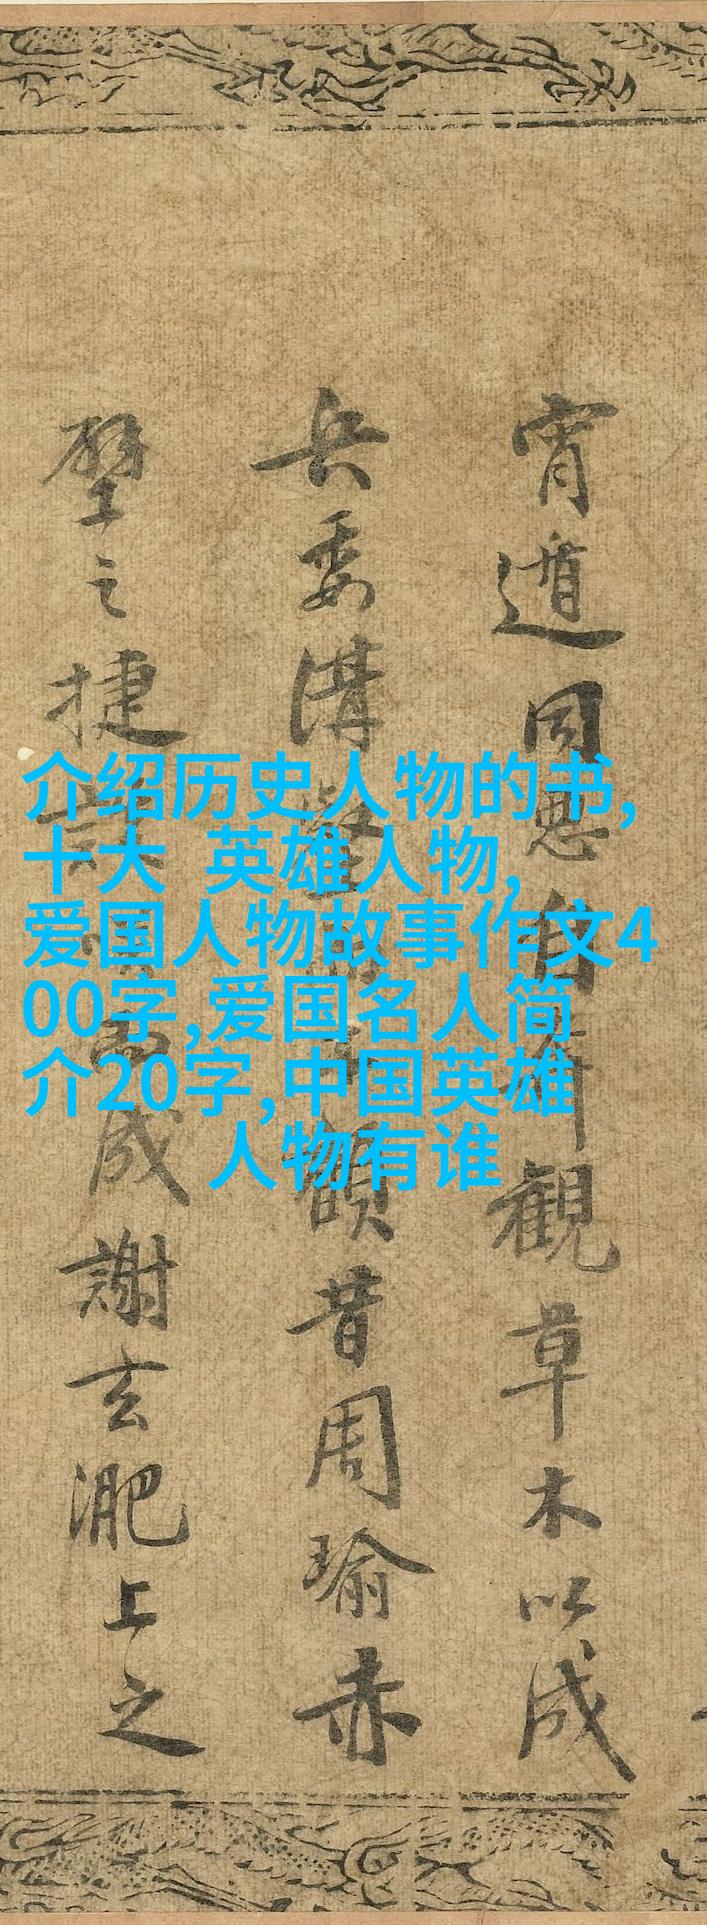 介绍历史人物的书,
十大 英雄人物,
爱国人物故事作文4
00字,爱国名人简
介20字,中国英雄
人物有谁
宵遁同奔觀草木以成
兵委溝壑顧昔周瑜赤
壁之捷談笑而成謝玄淝上之